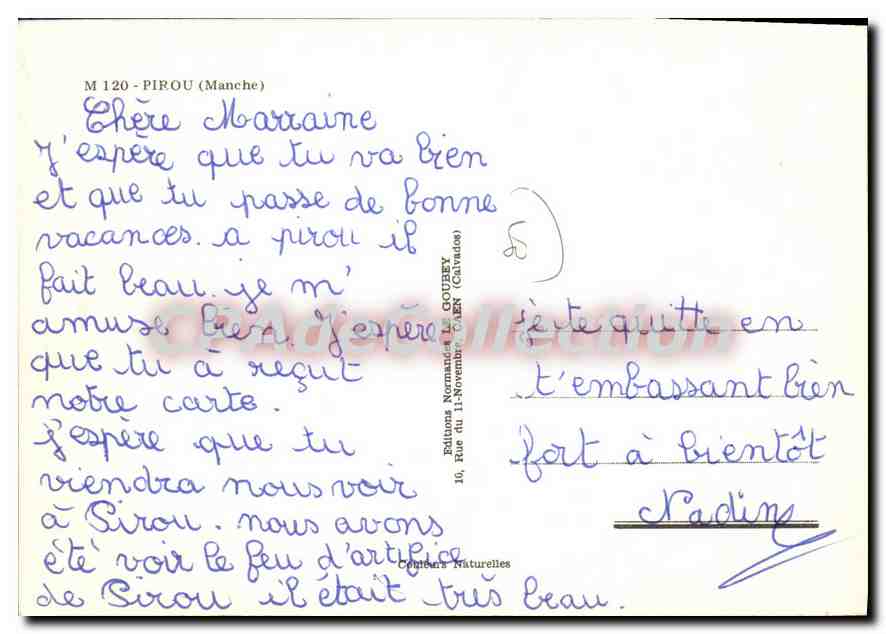 M 120 - PIROU (Manche)
Chère Marraine
J'espère que tu va bien
et que tu passe de bonne
vacances. a pirou il
fait beau. je m'
amuse bien. J'espère
que tu à reçut
notre carte.
j'espère que tu
viendra nous voir
à Pirou. nous avons
été voir le feu d'artifice
de Pirou il était très beau.
Editions Normandes LE GOUBEY
16, Rue du 11-Novembre, CAEN (Calvados)
Couleurs Naturelles
jè te quitte en
t'embassant bien
fort à bientôt
Nadine
CPAdeCollection